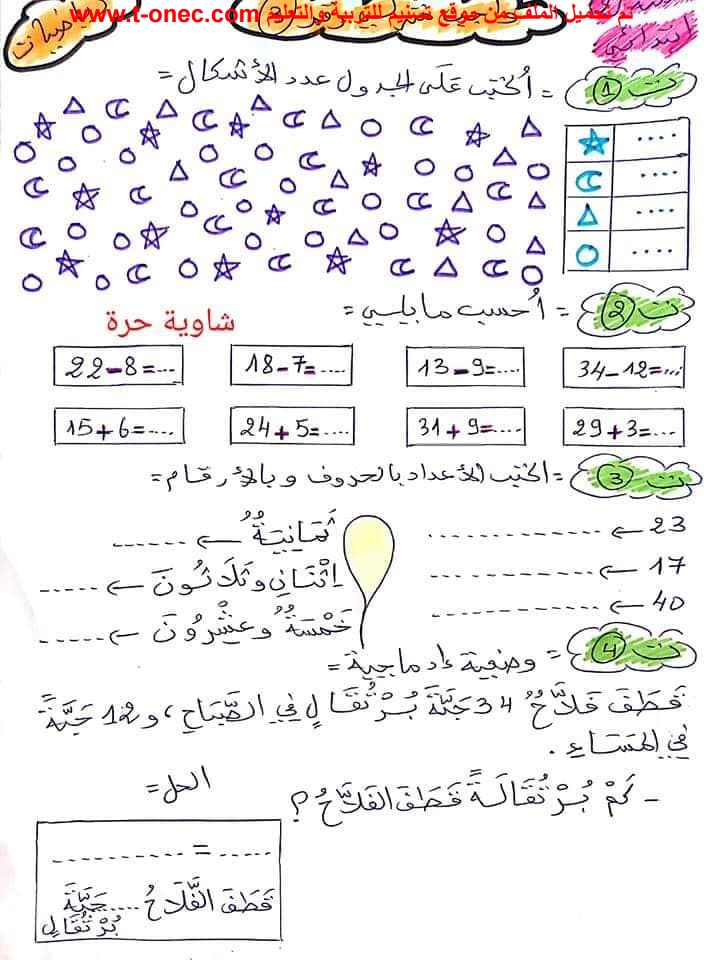 تم تحميل الملف من موقع تصنيم للتربية والتعليم www.t-onec.com
ابتدائي
رياضيات
ت 1 = أكتب على الجدول عدد الأشكال =
....
....
....
....
ت 2 = أحسب ما يلي =
شاوية حرة
34-12=....
13-9=....
18-7=....
22-8=....
29+3=....
31+9=....
24+5=....
15+6=....
ت 3 = اكتب الأعداد بالحروف و بالأرقام =
23 ← ..................
17 ← ..................
40 ← ..................
ثَمَانِيَةٌ ← ......
اِثْنَانِ وثَلَاثُونَ ← ......
خَمْسَةٌ وعِشْرُونَ ← ......
ت 4 = وضعية إدماجية =
قَطَفَ فَلَّاحٌ 34 حَبَّةَ بُرْتُقَالٍ فِي الصَّبَاحِ، و 12 حَبَّةً
فِي المَسَاءِ .
- كَمْ بُرْتُقَالَةً قَطَفَ الفَلَّاحُ ؟
الحل =
...... = ............
قَطَفَ الفَّلَاحُ ..... حَبَّةَ
بُرْتُقَالٍ